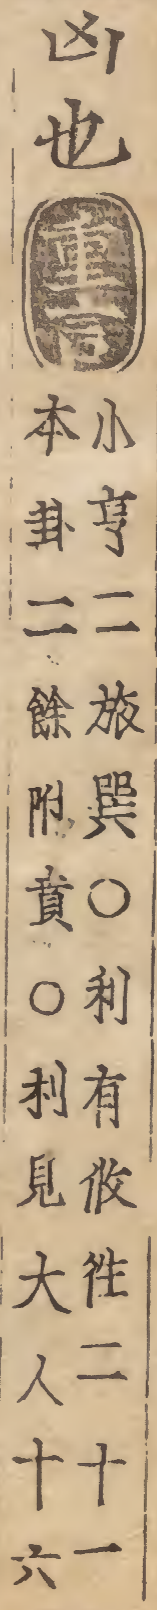 凶也
重言
小亨二旅巽○利有攸往二十一
本卦二餘附賁○利見大人十六